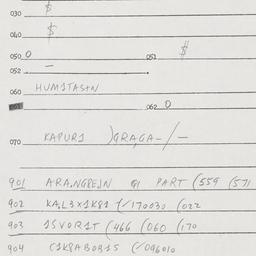 030 $
040 $
050 0 051 $
052 —
060 HUM1TAS+N
062 0
070 KAPUR1 )GRA,GA-/-
901 ARA,NGREJN 01 PART (559 (571
902 KA,L3X1K81 (✓170030 (022
903 1SVOR1T (466 (060 (170
904 C1K8ABOR1S (✓096010